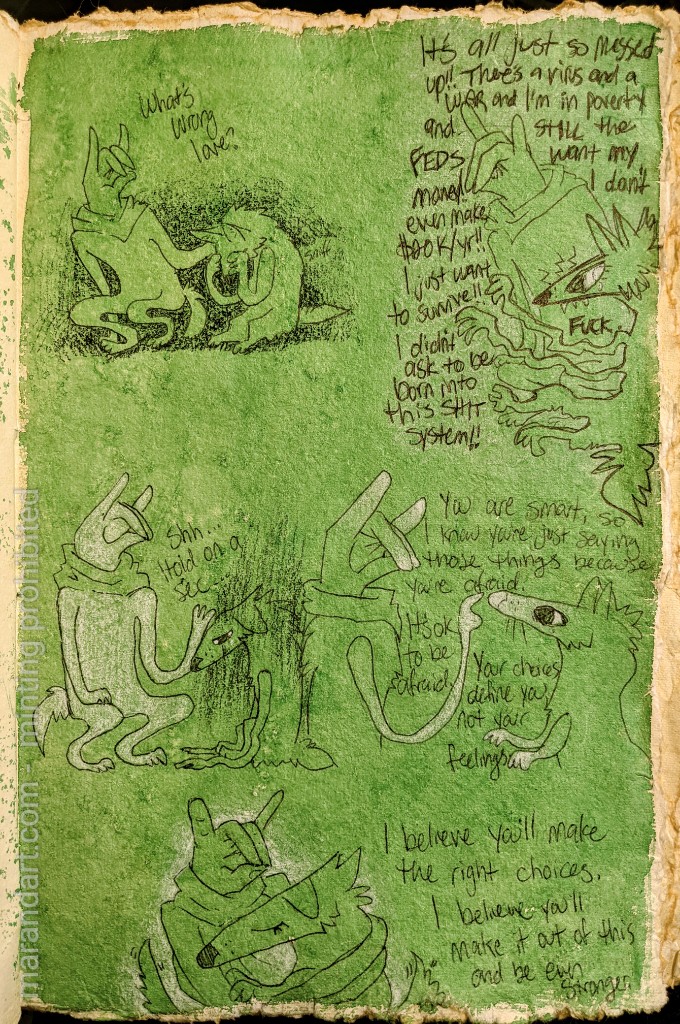 What's
wrong
love?
sniff
It's all just so messed
up!! There's a virus and a
WAR and I'm in poverty
and STILL the
FEDS want my
money!! I don't
even make
$20K/yr!!
I just want
to survive!!
I didn't
ask to be
born into
this SHIT
system!!
FUCK
Shh...
Hold on a
sec...
You are smart, so
I know you're just saying
those things because
you're afraid.
It's ok
to be
afraid
Your choices
define you,
not your
feelings.
I believe you'll make
the right choices.
I believe you'll
make it out of this
and be even
stronger.
marandart.com - minting prohibited